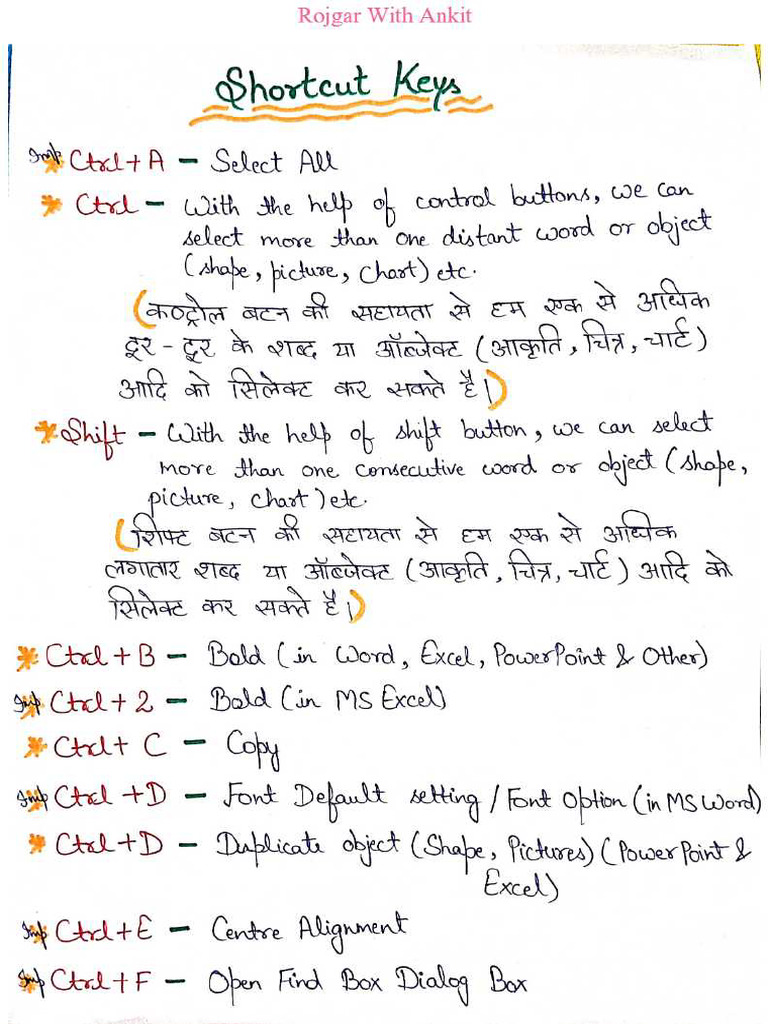 Rojgar With Ankit
Shortcut Keys
Imp Ctrl + A - Select All
Ctrl - With the help of control buttons, we can
select more than one distant word or object
(shape, picture, chart) etc.
(कण्ट्रोल बटन की सहायता से हम एक से अधिक
दूर - दूर के शब्द या ऑब्जेक्ट (आकृति, चित्र, चार्ट)
आदि को सिलेक्ट कर सकते है।)
Shift - With the help of shift button, we can select
more than one consecutive word or object (shape,
picture, chart) etc.
(शिफ्ट बटन की सहायता से हम एक से अधिक
लगातार शब्द या ऑब्जेक्ट (आकृति, चित्र, चार्ट) आदि को
सिलेक्ट कर सकते है।)
Ctrl + B - Bold (in Word, Excel, PowerPoint & Other)
Imp Ctrl + 2 - Bold (in MS Excel)
Ctrl + C - Copy
Imp Ctrl + D - Font Default setting / Font Option (in MS Word)
Ctrl + D - Duplicate object (Shape, Pictures) (PowerPoint &
Excel)
Imp Ctrl + E - Centre Alignment
Imp Ctrl + F - Open Find Box Dialog Box